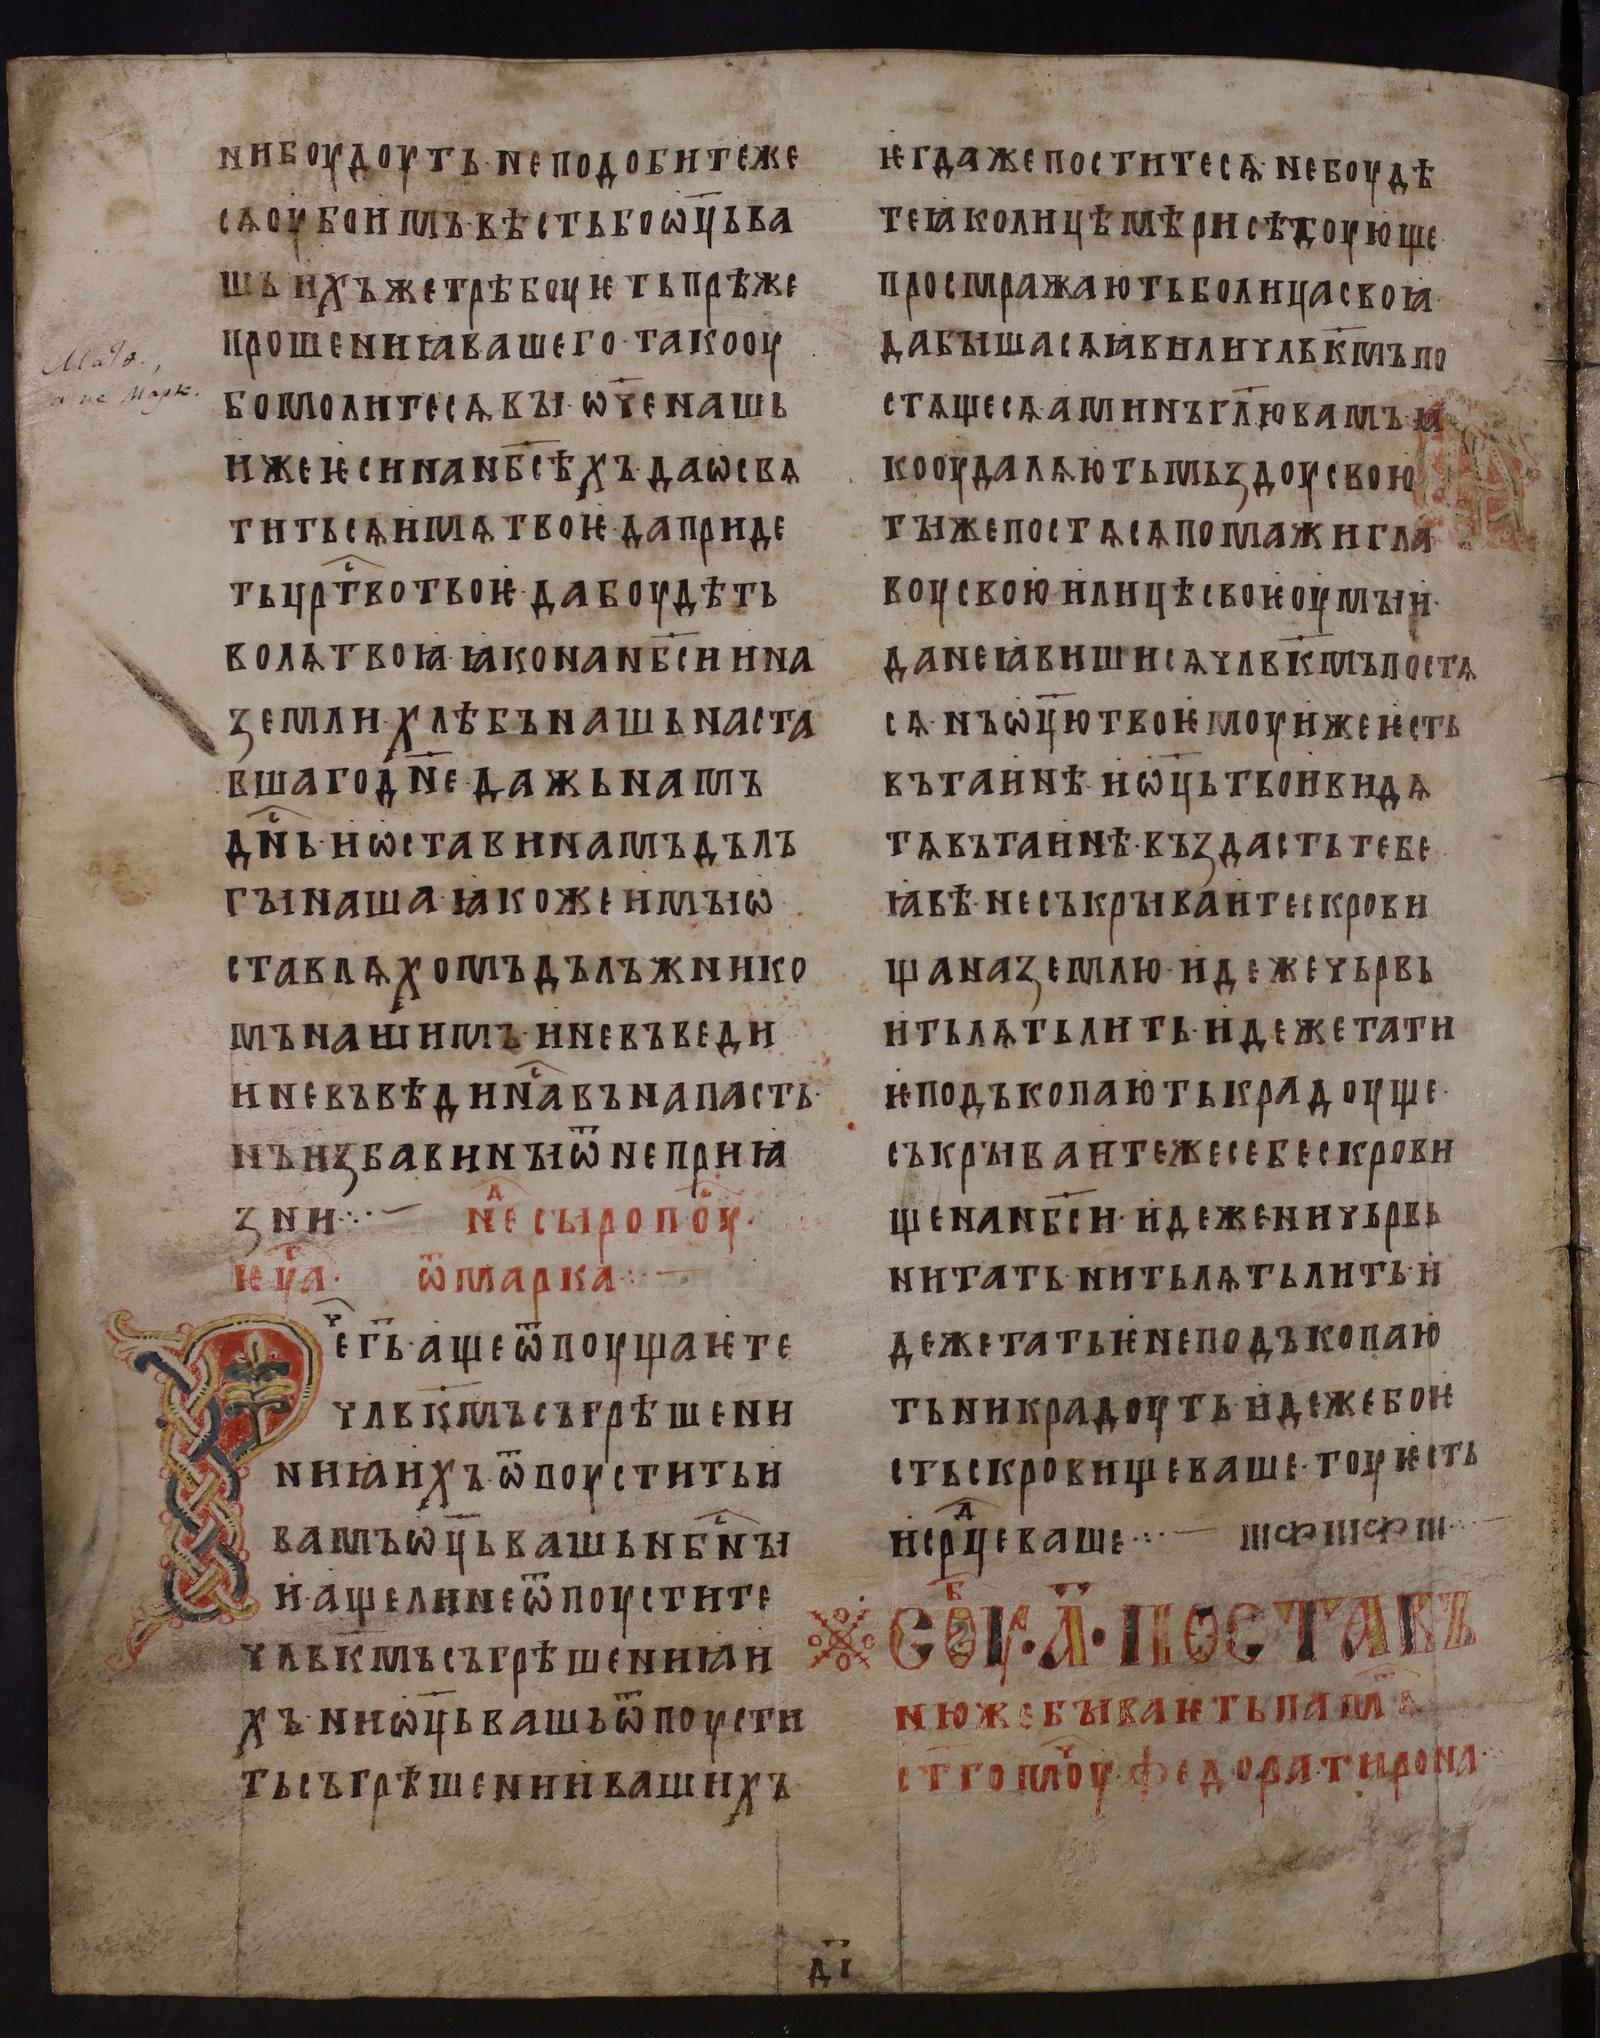 нибоудоуть· неподобитеже
сѧоубоимъ· вѣстьбоѡц҃ьва
шь ихъжетрѣбоуѥтьпрѣже
прошенниꙗвашего· такооу
бомолитесѧвꙑ· ѡч҃енашь
ижеѥсинан҃бсѣхъ· даѡсвѧ
титьсѧимѧтвоѥ· даприде
тьцр҃ствотвоѥ· дабоудѣть
волѧтвоꙗ· ꙗконан҃бсиина
земли· хлѣбънашьнаста
вшагод҃не· дажьнамъ
дн҃сь· иѡставинамъдълъ
гꙑнаша· ꙗкожеимꙑѡ
ставлѧхомъдължнико
мънашимъ· иневъведи
иневъвѣдин҃асвънапасть·
нъизбавинꙑѿнеприꙗ
зни· недсꙑропоус·
ѥц҃са· ѿмарка
Речег҃ь· ащеѿпоущаѥте
члвк҃мъсъгрѣшени
ниꙗихъ· ѿпоуститьи
вамъѡц҃ьвашьнб҃снꙑ
и· ащелинеѿпоустите
члвк҃мъсъгрѣшенниꙗи
хъ· ниѡц҃ьвашьѿпоусти
тьсъгрѣшениивашихъ·
ѥгдажепоститесѧ· небоудѣ
теꙗколицѣмѣрисѣтоующе·
просмражаютьболицасвоꙗ·
дабꙑшасѧꙗвиличлвк҃мъпо
стѧщесѧ· аминъгл҃ювамъ· ꙗ
кооудалѧютьмьздоусвою
тꙑжепостѧсѧпомажигла
воусвою· илицѣсвоѥоумꙑи·
данеꙗвишисѧчлвк҃мъпостѧ
сѧ· нъѡц҃ютвоѥмоуижеѥсть
вътаинѣ· иѡц҃ьтвоивидѧ
тѧвътаинѣ· въздастьтебе
ꙗвѣ· несъкрꙑваитескрови
щаназемлю· идежечьрвь
итьлѧтьлить· идежетати
ѥподъкопаютькрадоуще·
съкрꙑваитежесебескрови
щенан҃бси· идеженичьрвь
нитать· нитьлѧтьлить· и
дежетатьѥнеподъкопаю
тьникрадоуть· идежебоѥ
стьскровищеваше· тоуѥсть
исрдц҃еваше
Соубⷠ· а҃· поставъ
нюжебꙑваѥтьпамѧ
ст҃гомчоуфедоратирона·
Матф.,
а не Марк.
д҃і